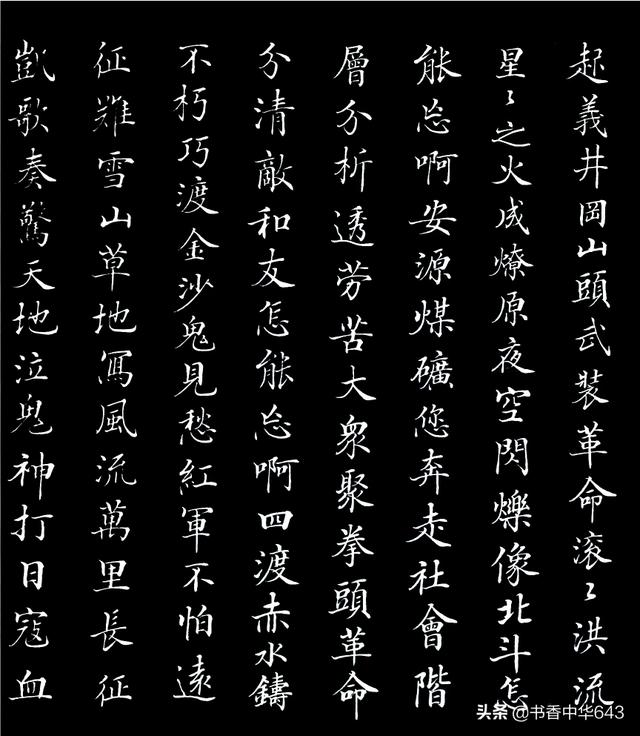 起義井岡山頭武裝革命滚〻洪流
星〻之火成燎原夜空閃爍像北斗怎
能忘啊安源煤礦您奔走社會階
層分析透劳苦大眾聚拳頭革命
分清敵和友怎能忘啊四渡赤水鑄
不朽巧渡金沙鬼見愁紅軍不怕遠
征難雪山草地寫風流萬里長征
凱歌奏驚天地泣鬼神打日寇血
头条@书香中华643